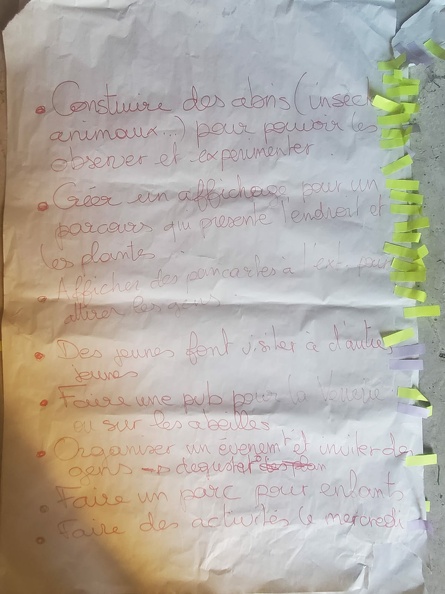 • Construire des abris (insect
animaux...) pour pouvoir les
observer et expérimenter.
• Créer un affichage pour un
parcours qui présente l'endroit et
les plantes
• Afficher des pancartes à l'ext pour
attirer les gens.
• Des jeunes font visiter à d'autres
jeunes
• Faire une pub pour la
ou sur les abeilles
• Organiser un évènemt et inviter des
gens → déguster
• Faire un parc pour enfants
• Faire des activités le mercredi